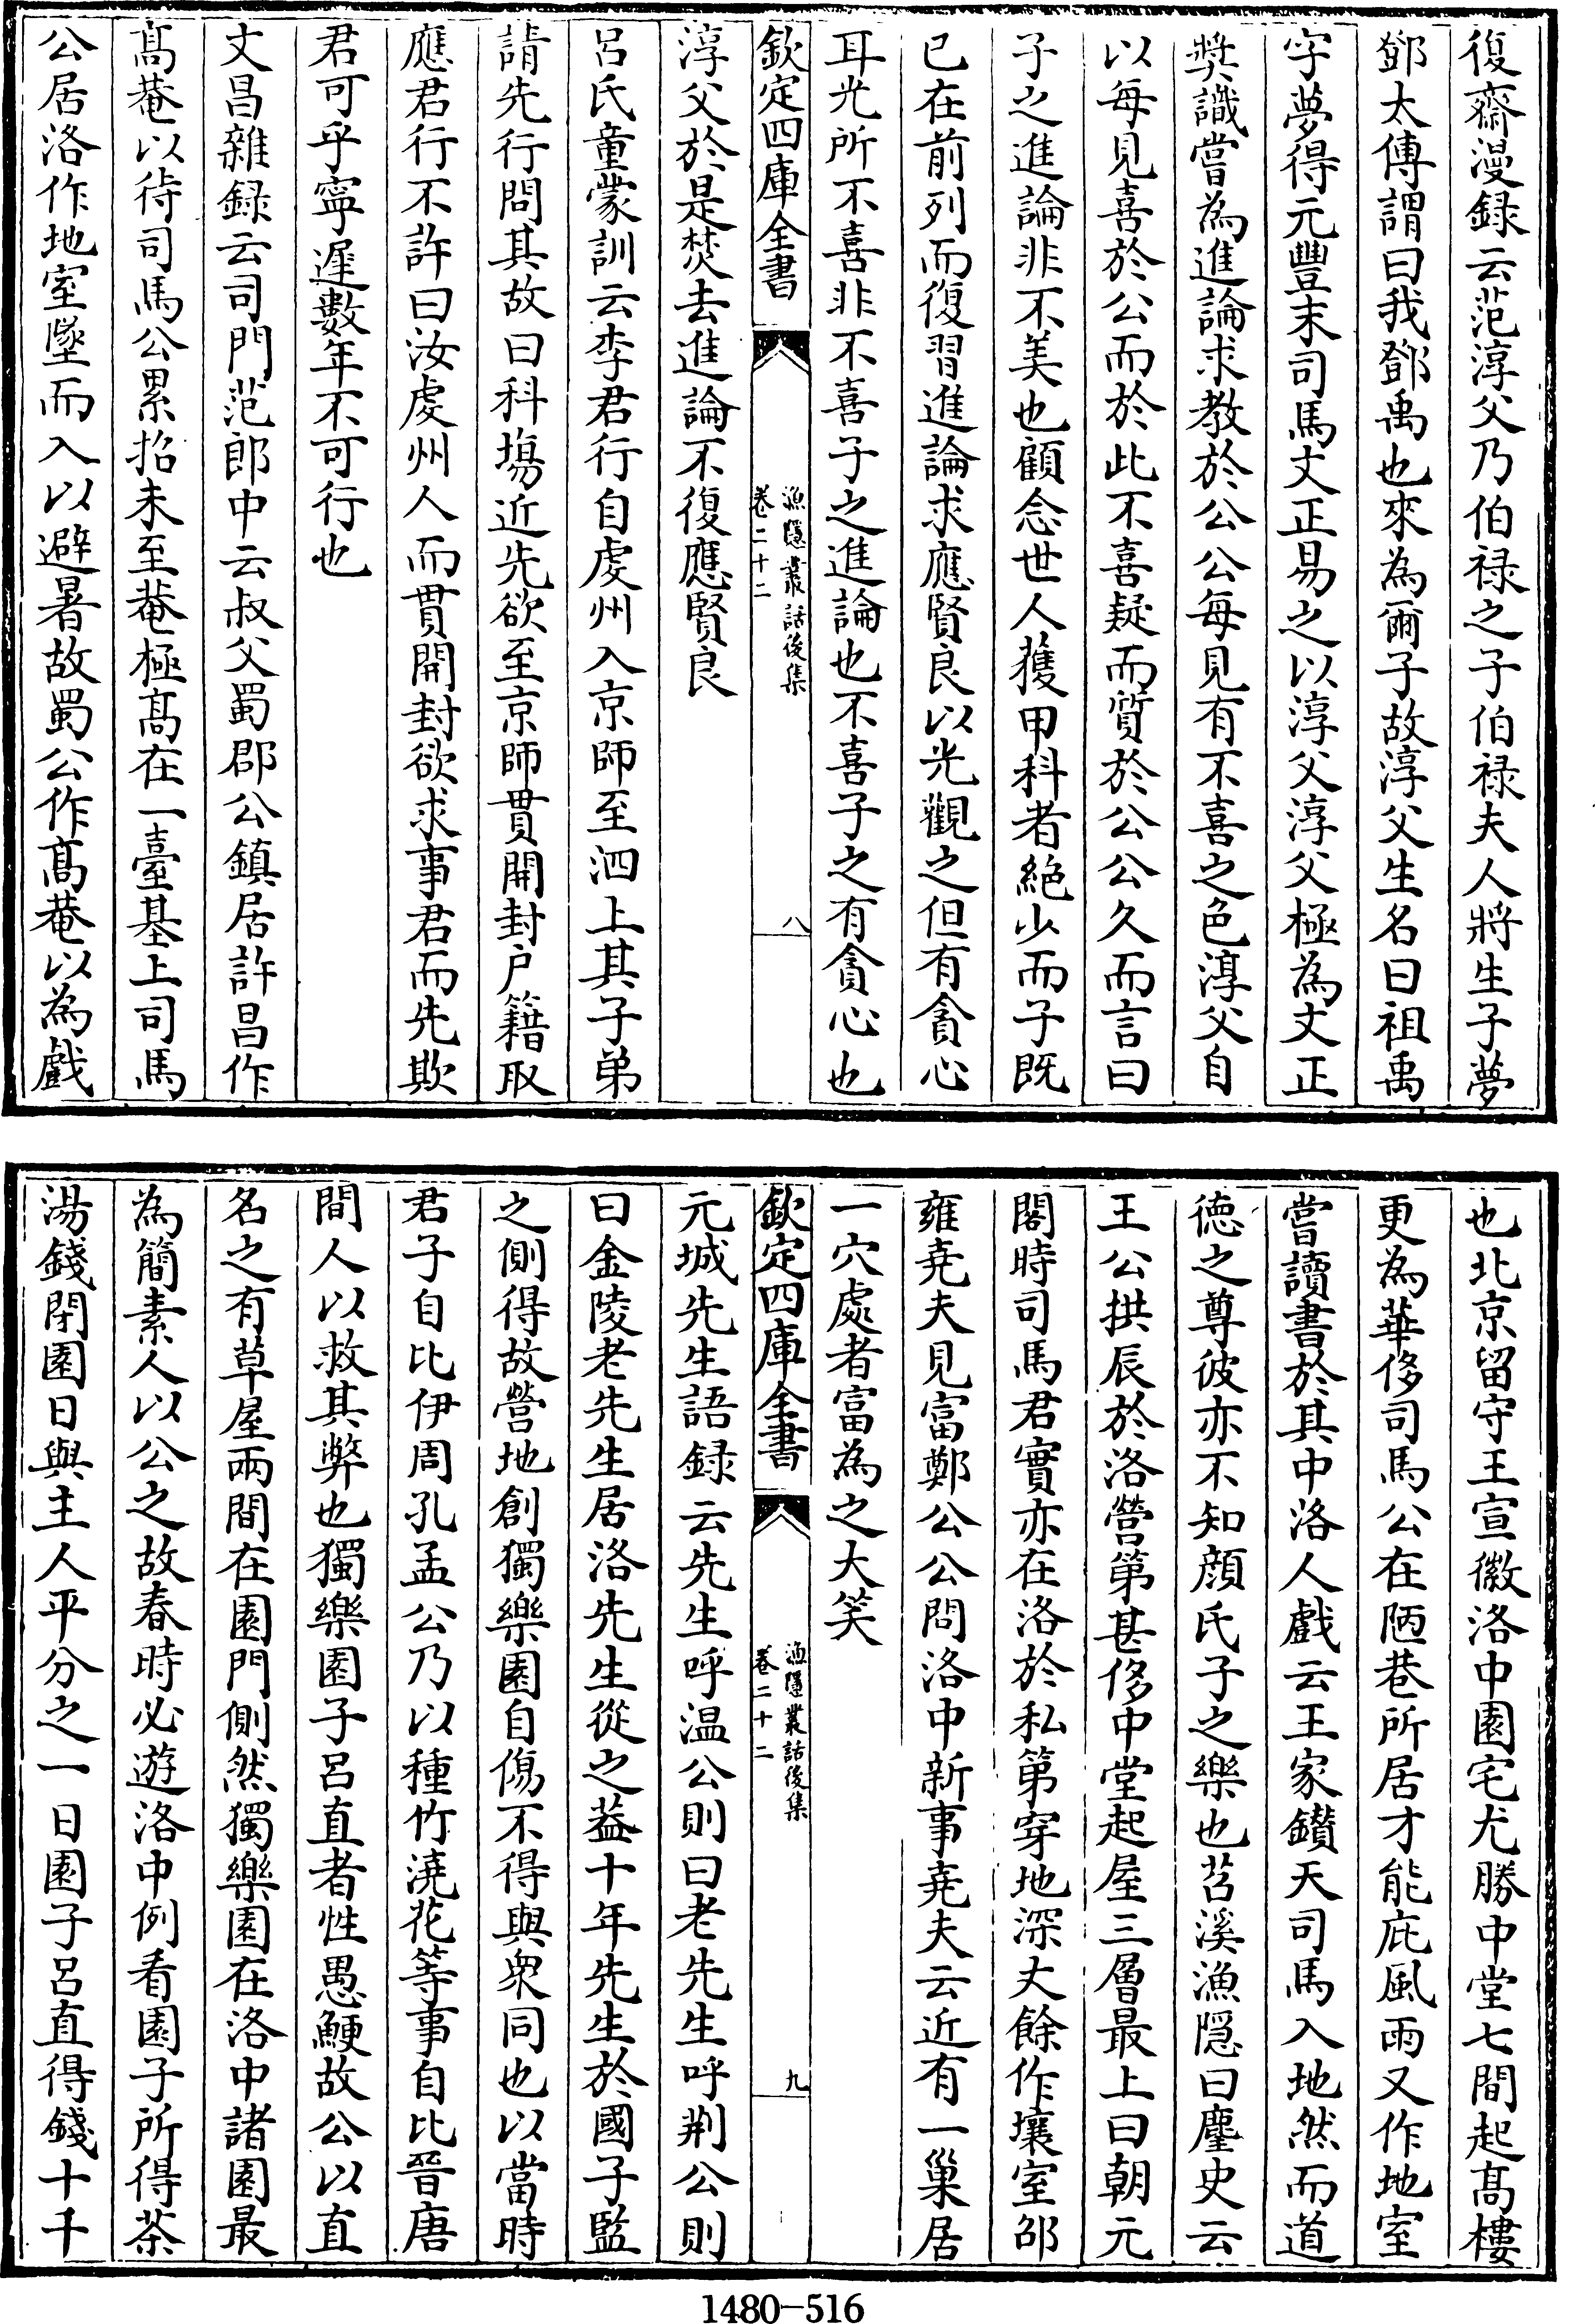 復齋漫録云范淳父乃伯禄之子伯禄夫人將生子夢
鄧太傅謂曰我鄧禹也來為爾子故淳父生名曰祖禹
字夢得元豐末司馬文正易之以淳父淳父極為文正
奬識嘗為進論求教於公公每見有不喜之色淳父自
以每見喜於公而於此不喜疑而質於公公久而言曰
子之進論非不美也顧念世人獲甲科者絶少而子既
已在前列而復習進論求應賢良以光觀之但有貪心
耳光所不喜非不喜子之進論也不喜子之有貪心也
欽定四庫全書
漁隱叢話後集
卷二十二
八
淳父於是焚去進論不復應賢良
呂氏童蒙訓云李君行自虔州入京師至泗上其子弟
請先行問其故曰科塲近先欲至京師貫開封户籍取
應君行不許曰汝虔州人而貫開封欲求事君而先欺
君可乎寜遲數年不可行也
文昌雜録云司門范郎中云叔父蜀郡公鎮居許昌作
髙菴以待司馬公累招未至菴極髙在一臺基上司馬
公居洛作地室墜而入以避暑故蜀公作髙菴以為戲
也北京留守王宣徽洛中園宅尤勝中堂七間起髙樓
更為華侈司馬公在陋巷所居才能庇風雨又作地室
嘗讀書於其中洛人戲云王家鑚天司馬入地然而道
徳之尊彼亦不知顔氏子之樂也苕溪漁隠曰麈史云
王公拱辰於洛營第甚侈中堂起屋三層最上曰朝元
閣時司馬君實亦在洛於私第穿地深丈餘作壤室邵
雍堯夫見富鄭公公問洛中新事堯夫云近有一巢居
一穴處者富為之大笑
欽定四庫全書
漁隱叢話後集
卷二十二
九
元城先生語録云先生呼温公則曰老先生呼荆公則
曰金陵老先生居洛先生從之葢十年先生於國子監
之側得故營地創獨樂園自傷不得與衆同也以當時
君子自比伊周孔孟公乃以種竹澆花等事自比晉唐
間人以救其弊也獨樂園子呂直者性愚鯁故公以直
名之有草屋兩間在園門側然獨樂園在洛中諸園最
為簡素人以公之故春時必遊洛中例看園子所得茶
湯錢閉園日與主人平分之一日園子呂直得錢十千
1480-516